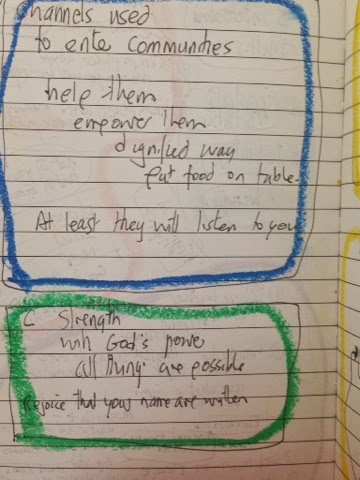 hannels used
to ente Communities
help them
empower them
dignified way
Put food on table.
At least they will listen to you
C Strength
with God's power
all things are possible
Rejoice that your name are written